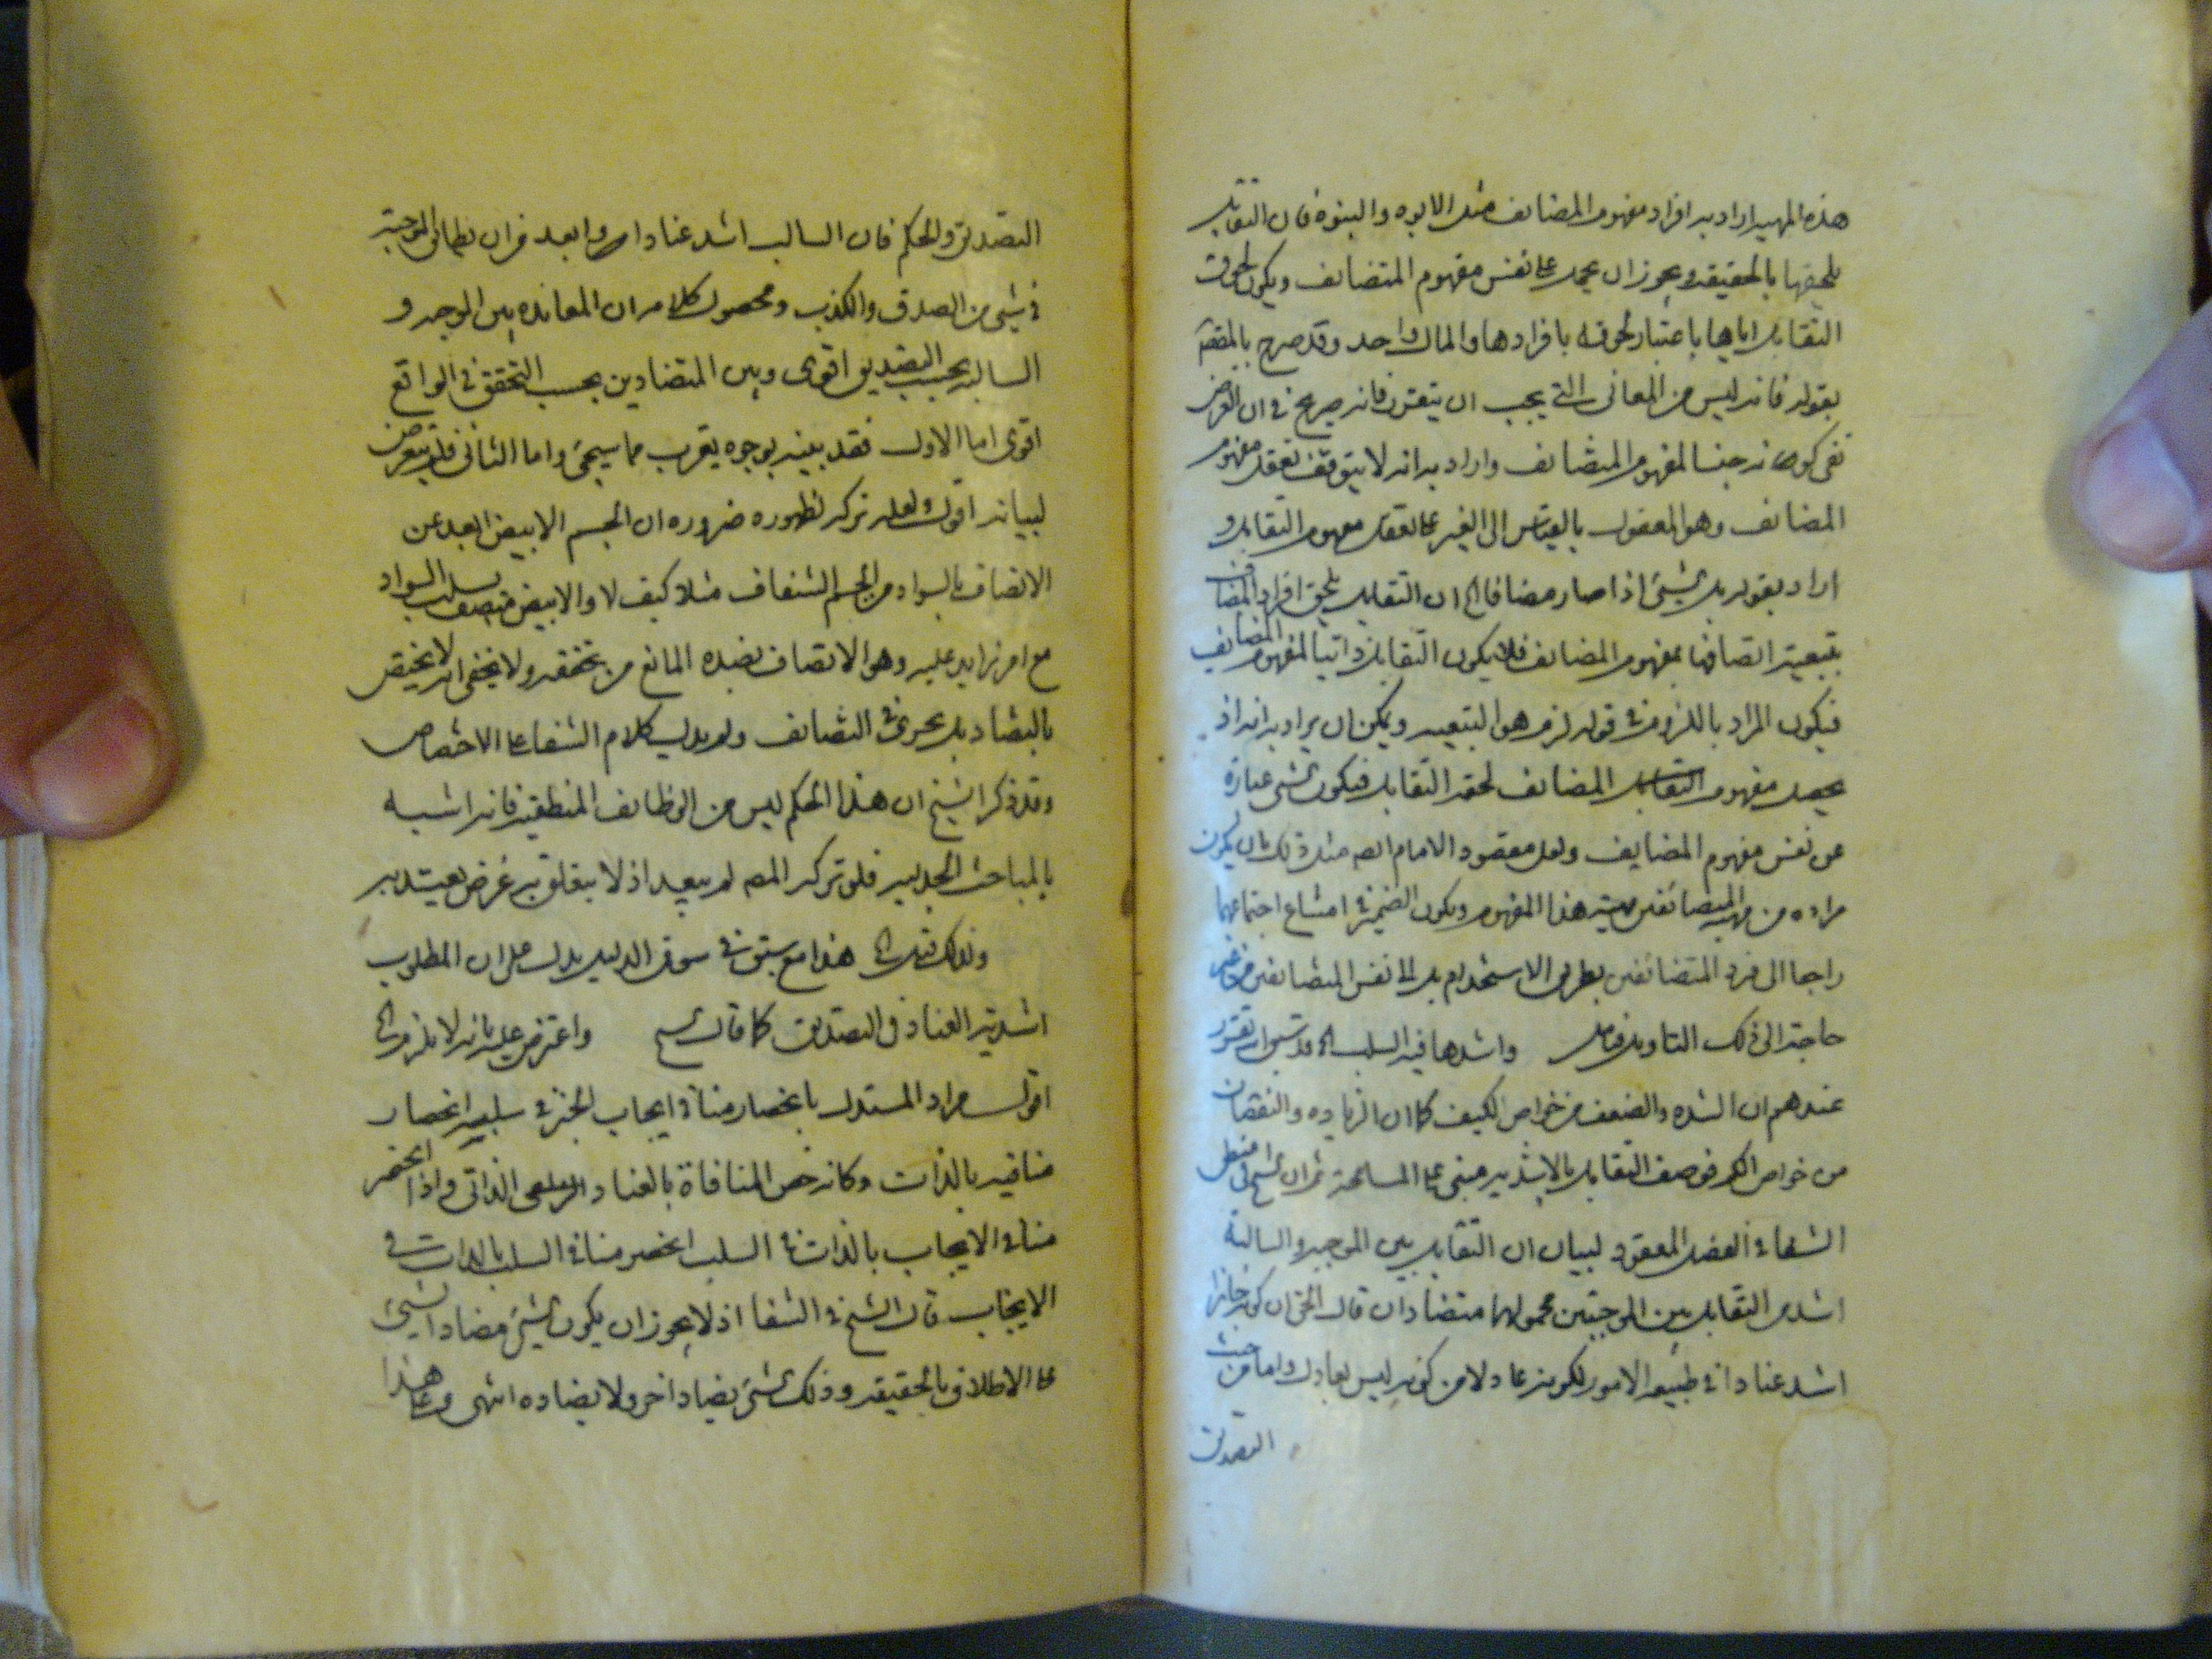 هذه المهية اراد به افراد مفهوم المضايف مثل الابوه والبنوه فان التقابل
يلحقها بالحقيقة ويجوز ان يحمل على نفس مفهوم المتضايف ويكون لحوق
التقابل اياها باعتبار لحوقه بافرادها والمال واحد وقد صرح
بقوله فانه ليس من المعانى التى يجب ان يتقرر فانه صريح فى ان الغرض
نفى كونه جنسا لمفهوم المتضايف واراد به انه لا يتوقف تعقل مفهوم
المضايف وهو المعقول بالقياس الى الغير على تعقل مفهوم التقابل و
اراد بقوله بل الشىء اذا صار مضافا الخ ان التقابل يلحق افراد المضاف
بتبعية اتصافها بمفهوم المضايف فلا يكون التقابل ذاتيا لمفهوم المضايف
فيكون المراد باللزوم فى قوله لزم هو التبعيه ويمكن ان يراد به انه اذ
يحصل مفهوم المضايف لحقه التقابل فيكون الشىء عبارة
عن نفس مفهوم المضايف ولعل مقصود الامام ايضا مثل ذلك بان يكون
مراده من مهية المتضائفين مهية هذا المفهوم ويكون الضمير فى امتناع اجتماعهما
راجعا الى فرد المتضائفين بطريق الاستخدام بل الى نفس المتضائفين من غير
حاجة الى ذلك التاويل فتامل واشدها فيه السلب الخ قد سبق انه تقرر
عندهم ان الشده والضعف من خواص الكيف كما ان الزياده والنقصان
من خواص الكم فوصف التقابل بالاشدية مبنى على المسامحة ثم ان الشيخ فى منطق
الشفاء فى الفصل المعقود لبيان ان التقابل بين الموجبة والسالبة
اشد من التقابل بين الموجبتين محمولهما متضادان قال الحق ان كونه جائرا
اشد عنادا فى طبيعة الامور لكونه عادلا من كونه ليس بعادل واما من حيث
التصديق
التصديق والحكم فان السالب اشد عنادا له وابعد من ان يطابق الموجبة
فى شىء من الصدق والكذب ومحصول كلامه ان المعانده بين الموجبه و
السالبه بحسب التصديق اقوى وبين المتضادين بحسب التحقق فى الواقع
اقوى اما الاول فقد بينه بوجوه يقرب مما سيجىء واما الثانى فلم يتعرض
لبيانه اقول لعله تركه لظهوره ضروره ان الجسم الابيض ابعد عن
الاتصاف بالسواد من الجسم الشفاف مثلا كيف لا والابيض متصف بسلب السواد
مع امر زايد عليه وهو الاتصاف بضده المانع من تحققه ولا يخفى انه لا يختص
بالتضاد بل يجرى فى التضايف ولم يدل كلام الشفا على الاختصاص
وقد ذكر الشيخ ان هذا الحكم ليس من الوظائف المنطقية فانه اشبه
بالمباحث الجدليه فلو تركه المصـ لم يبعد اذ لا يتعلق به غرض يعتد به
وذلك هذا مع سبق فى سوق الدليل يدل على ان المطلوب
اشدية العناد فى التصديق كما قال الشيخ واعترض عليه بانه لا يلزم الخ
اقول مراد المستدل بانحصار منافى ايجاب الخير فى سلبه انحصار
منافيه بالذات وكانه خص المنافاة بالعناد الذاتى واذا انحصر
منافى الايجاب بالذات فى السلب انحصر منافى السلب بالذات فى
الايجاب قال الشيخ فى الشفا اذ لا يجوز ان يكون الشىء مضادا لشىء
على الاطلاق بالحقيقه وذلك الشىء يضاد اخر ولا يضاده انتهى وعلى هذا